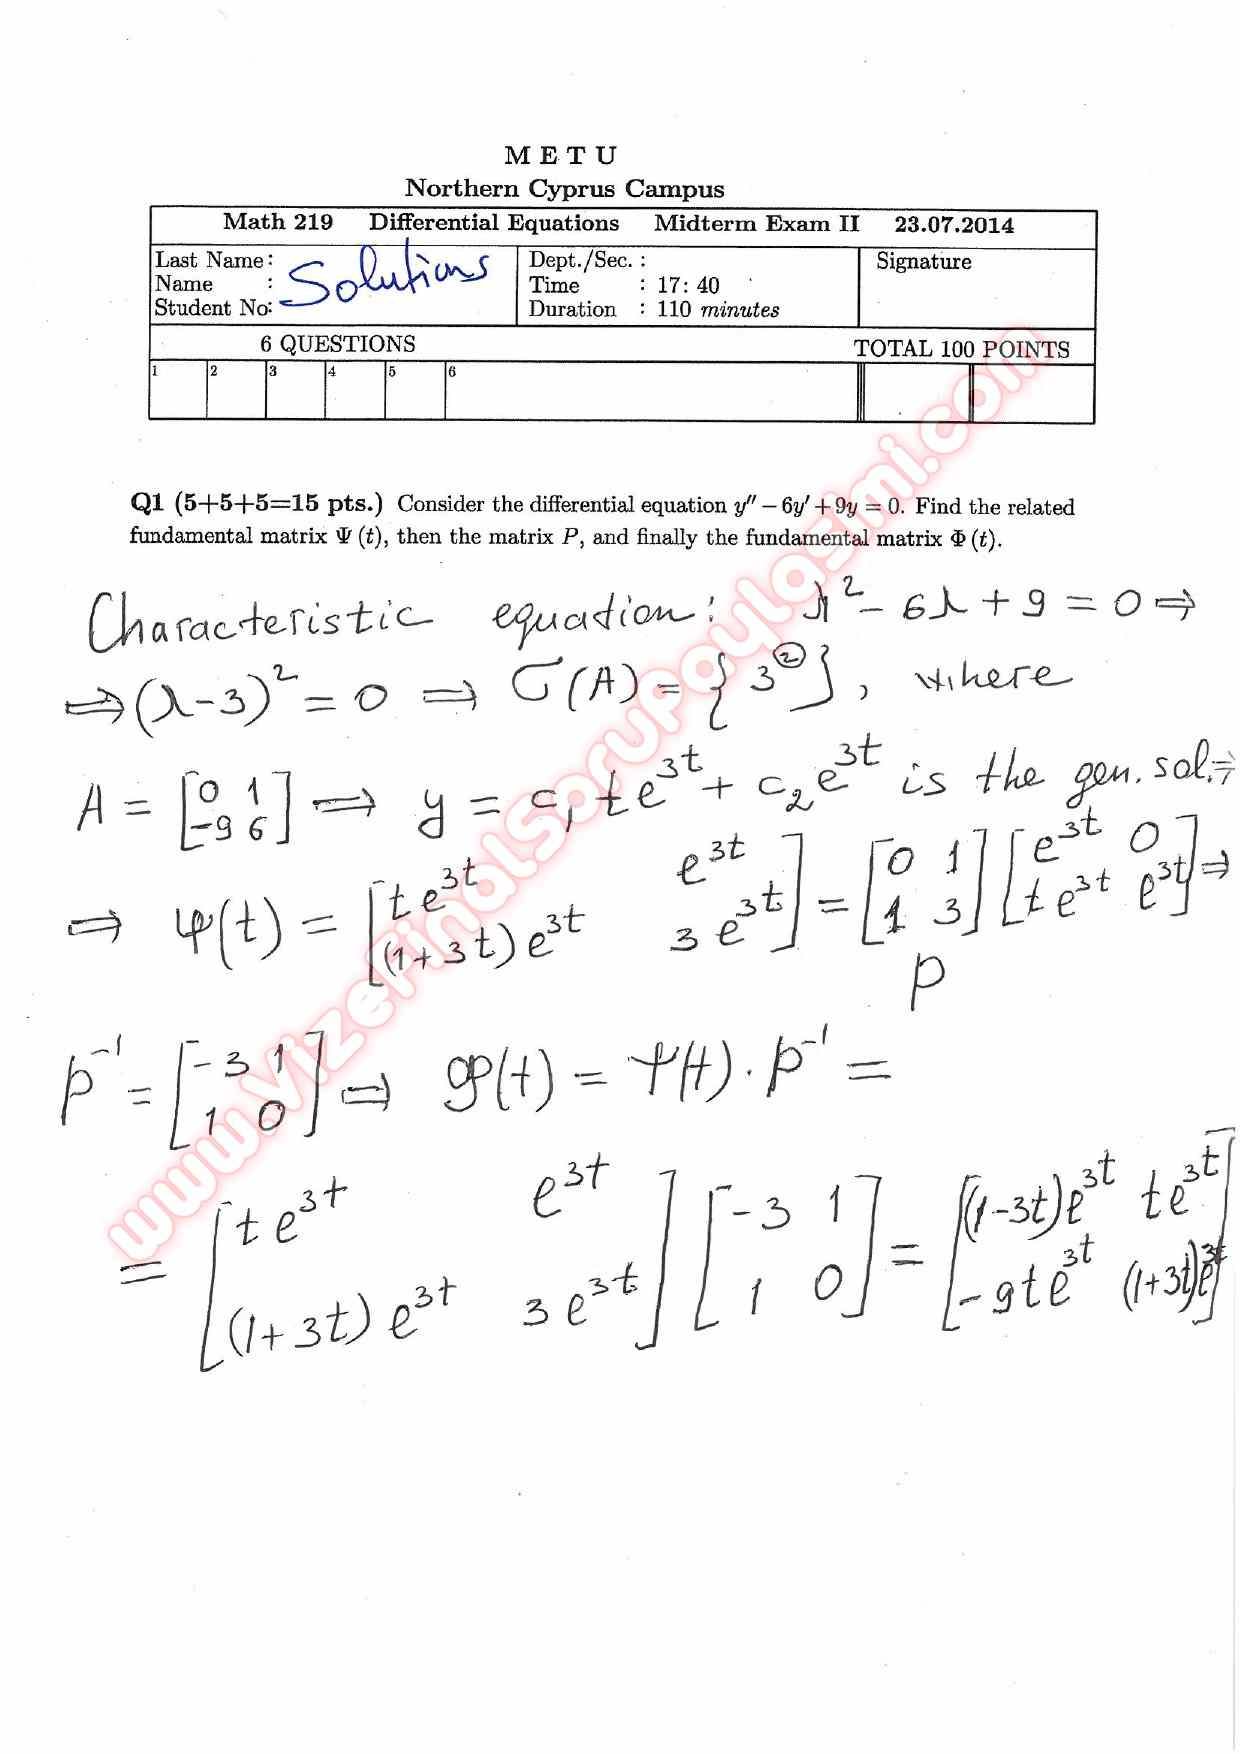 M E T U
Northern Cyprus Campus
Math 219 Differential Equations Midterm Exam II 23.07.2014
Last Name: Solutions
Name :
Student No:
Dept./Sec. :
Time : 17: 40
Duration : 110 minutes
Signature
6 QUESTIONS TOTAL 100 POINTS
1 2 3 4 5 6
Q1 (5+5+5=15 pts.) Consider the differential equation y″ − 6y′ + 9y = 0. Find the related
fundamental matrix Ψ (t), then the matrix P, and finally the fundamental matrix Φ (t).
Characteristic equation: λ² − 6λ + 9 = 0 ⇒
⇒ (λ−3)² = 0 ⇒ σ(A) = {3^②}, where
A = [0 1; −9 6] ⇒ y = c₁ t e^{3t} + c₂ e^{3t} is the gen. sol. ⇒
⇒ ψ(t) = [t e^{3t} e^{3t}; (1+3t) e^{3t} 3 e^{3t}] = [0 1; 1 3] [e^{3t} 0; t e^{3t} e^{3t}] ⇒
P
P⁻¹ = [−3 1; 1 0] ⇒ φ(t) = ψ(t) · P⁻¹ =
= [t e^{3t} e^{3t}; (1+3t) e^{3t} 3 e^{3t}] [−3 1; 1 0] = [(1−3t)e^{3t} te^{3t}; −9te^{3t} (1+3t)e^{3t}]
www.VizeFinalSoruPaylasimi.com